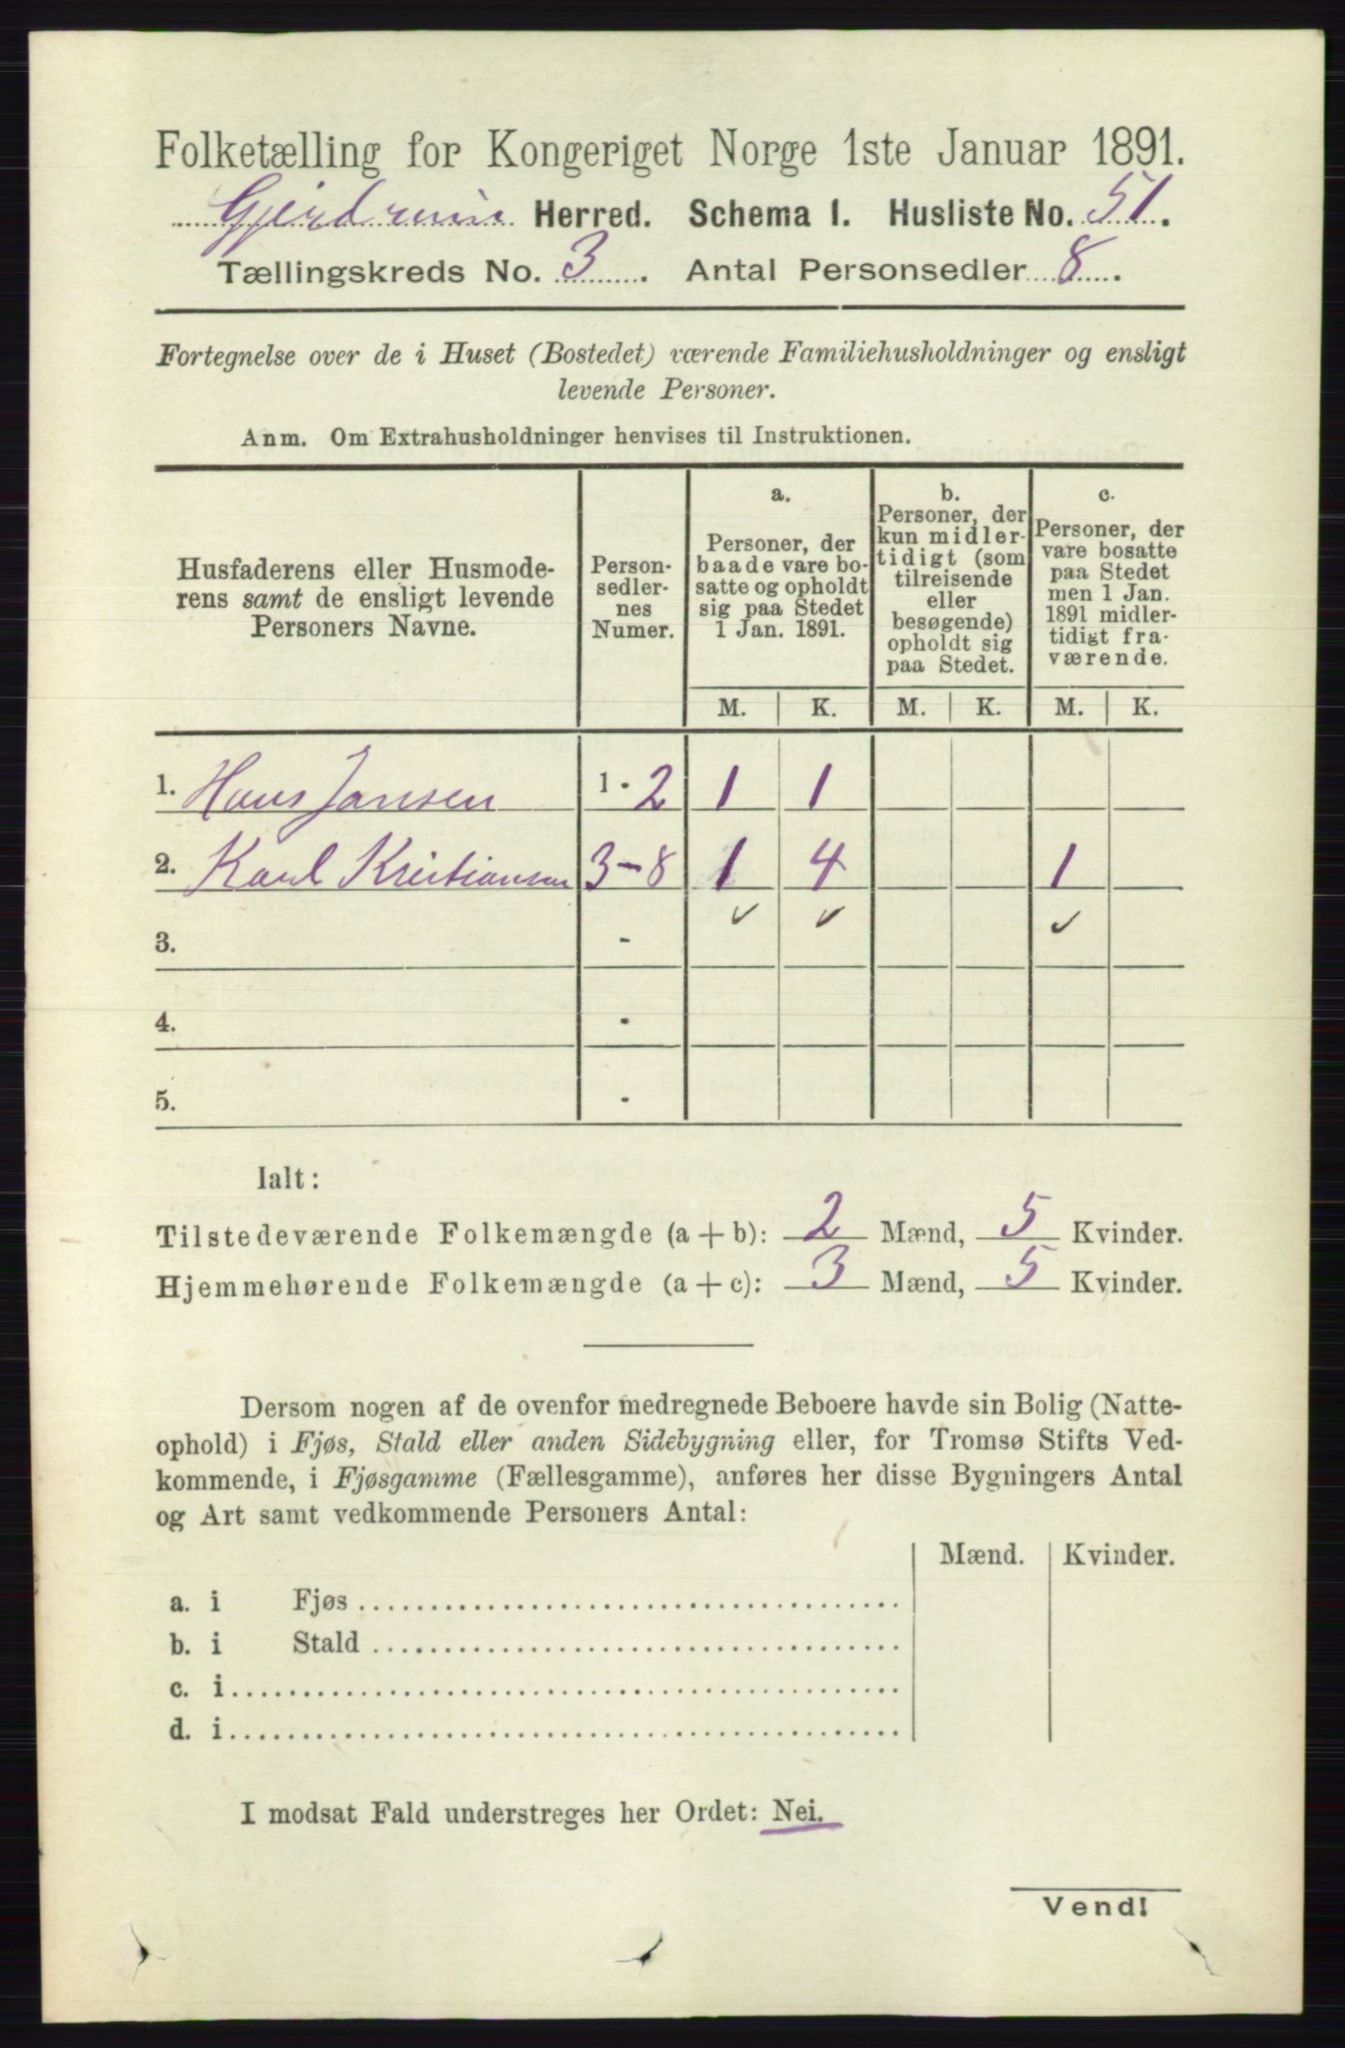 Folketælling for Kongeriget Norge 1ste Januar 1891.
Gjerdrum Herred. Schema 1. Husliste No. 51.
Tællingskreds No. 3. Antal Personsedler 8.
Fortegnelse over de i Huset (Bostedet) værende Familiehusholdninger og ensligt
levende Personer.
Anm. Om Extrahusholdninger henvises til Instruktionen.
Husfaderens eller Husmode-
rens samt de ensligt levende
Personers Navne.
Person-
sedler-
nes
Numer.
a.
Personer, der
baade vare bo-
satte og opholdt
sig paa Stedet
1 Jan. 1891.
b.
Personer, der
kun midler-
tidigt (som
tilreisende
eller
besøgende)
opholdt sig
paa Stedet.
c.
Personer, der
vare bosatte
paa Stedet
men 1 Jan.
1891 midler-
tidigt fra-
værende.
M. K. M. K. M. K.
1. Hans Jansen 1 - 2 1 1
2. Karl Kristiansen 3 - 8 1 4 1
3. - ✓ ✓ ✓
4. -
5. -
Ialt:
Tilstedeværende Folkemængde (a + b): 2 Mænd, 5 Kvinder.
Hjemmehørende Folkemængde (a + c): 3 Mænd, 5 Kvinder.
Dersom nogen af de ovenfor medregnede Beboere havde sin Bolig (Natte-
ophold) i Fjøs, Stald eller anden Sidebygning eller, for Tromsø Stifts Ved-
kommende, i Fjøsgamme (Fællesgamme), anføres her disse Bygningers Antal
og Art samt vedkommende Personers Antal:
Mænd. Kvinder.
a. i Fjøs
b. i Stald
c. i
d. i
I modsat Fald understreges her Ordet: Nei.
Vend!